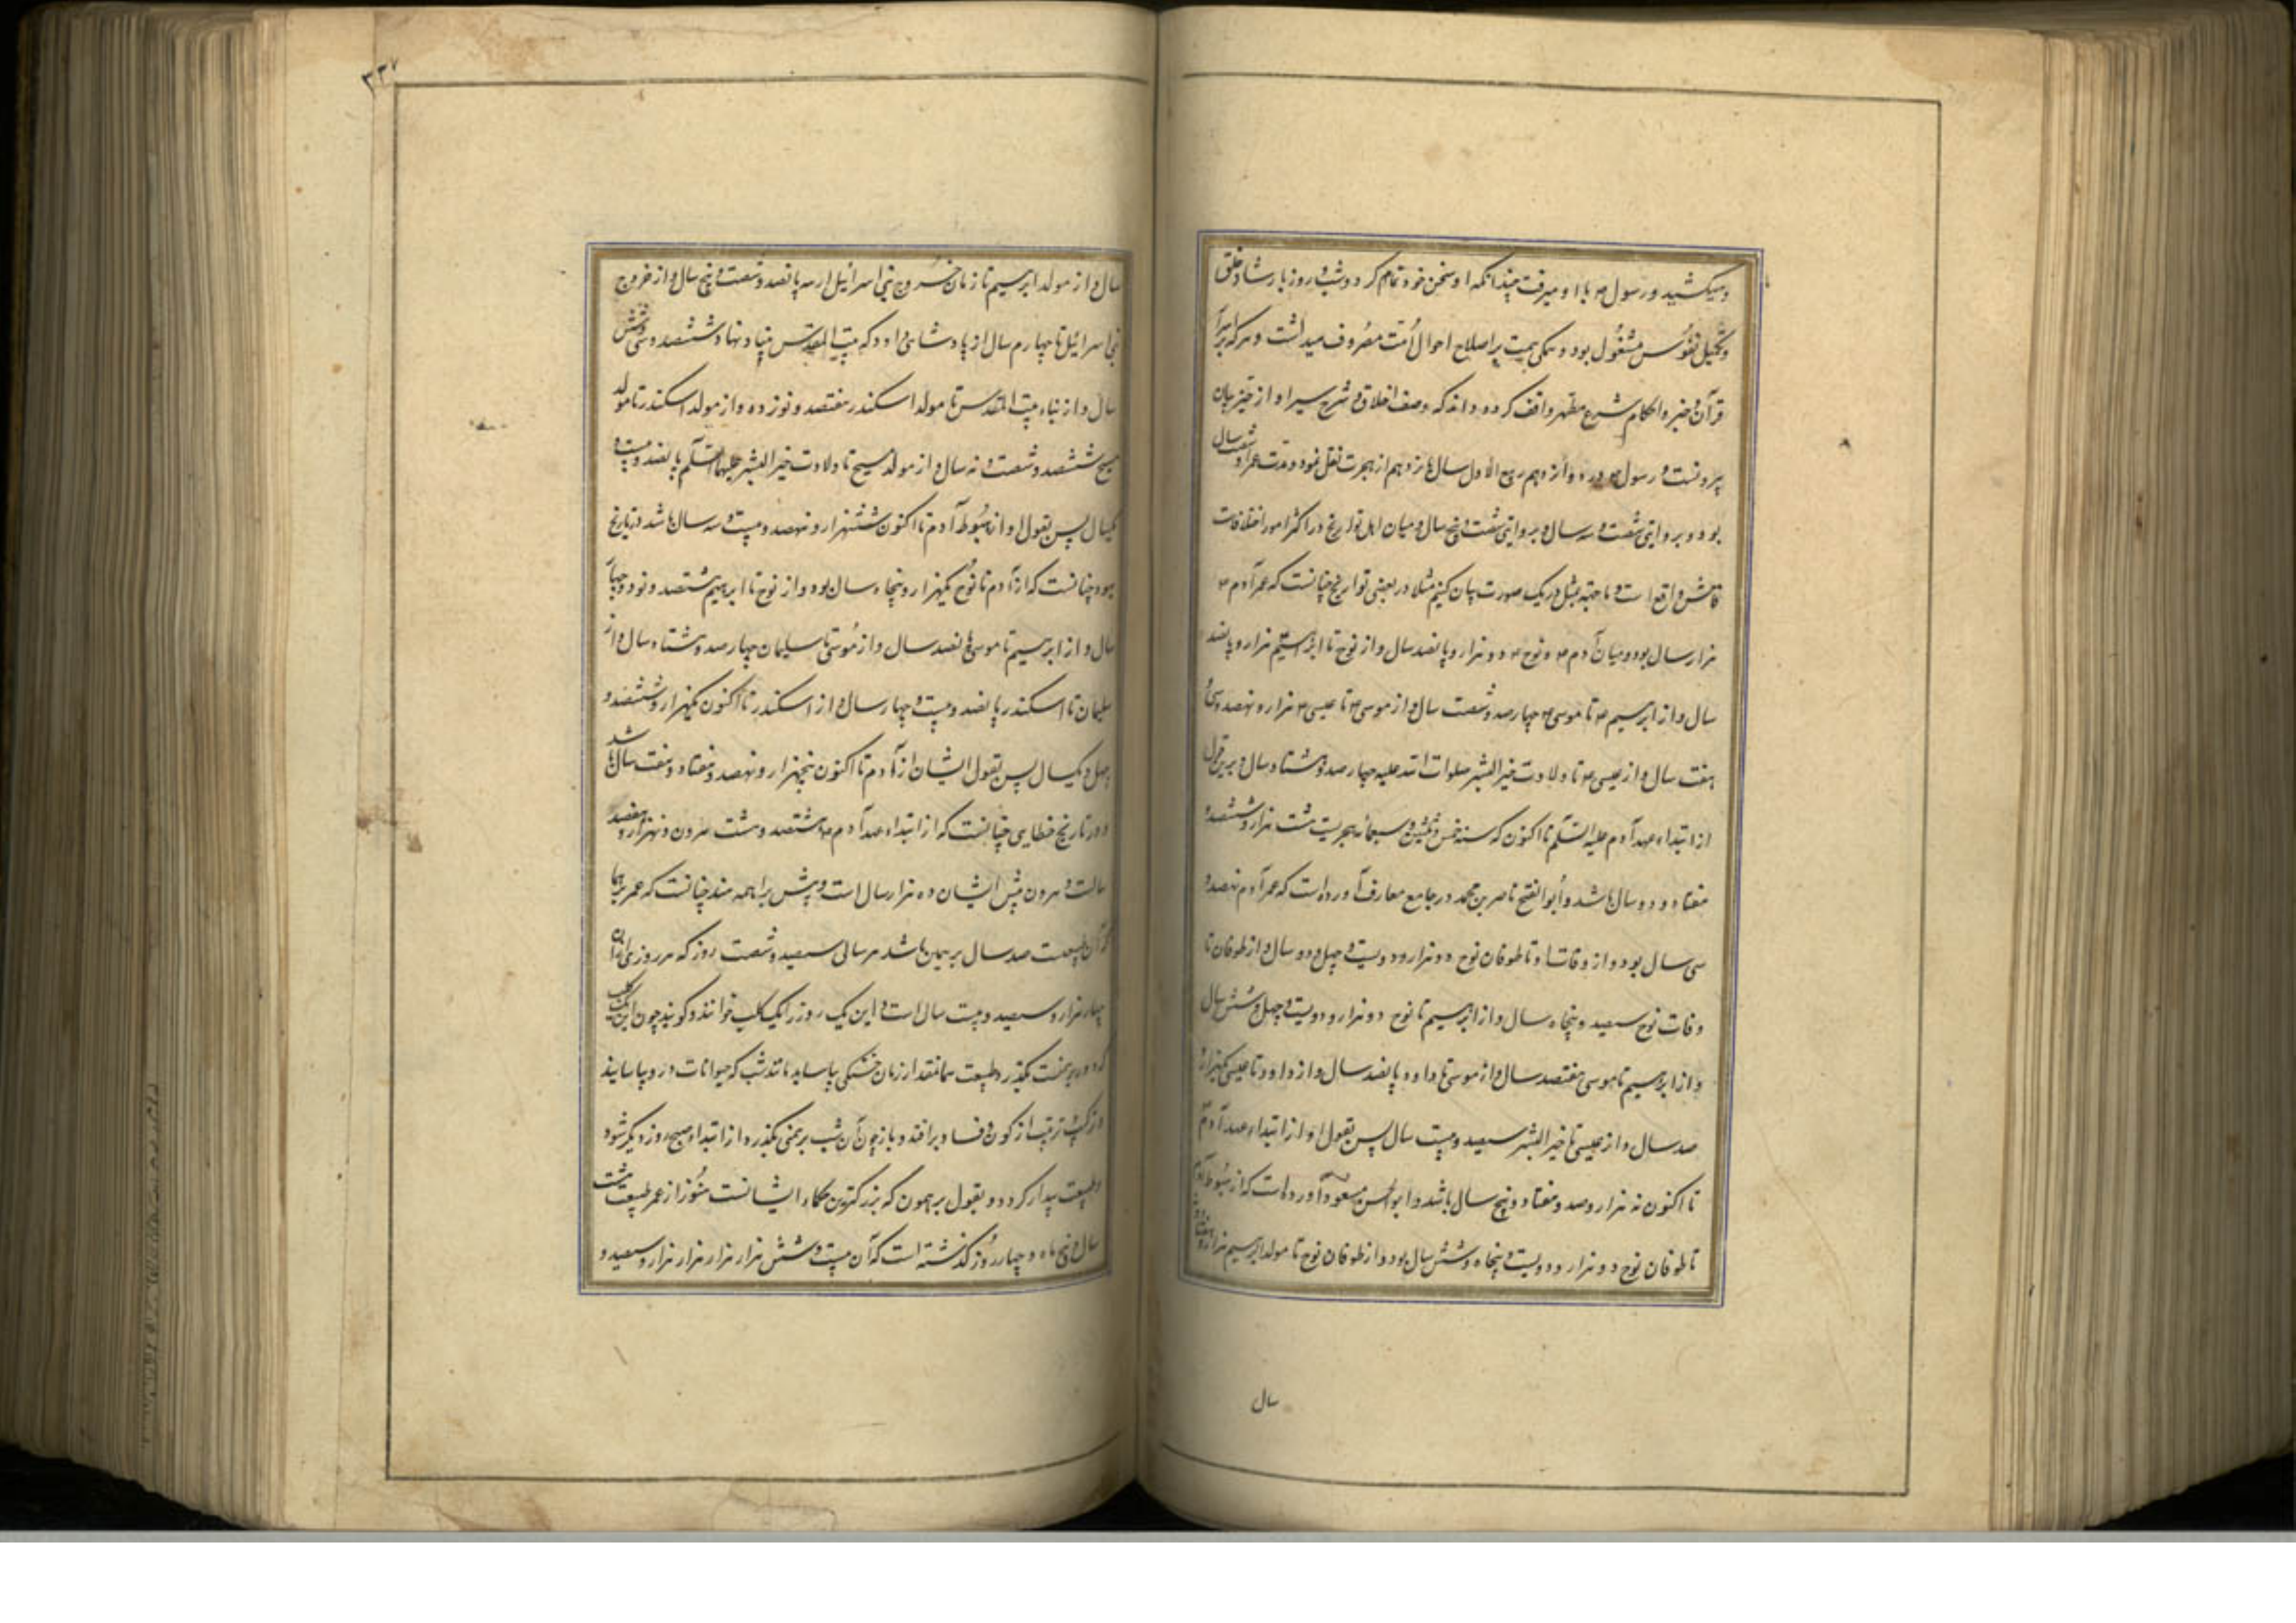 و میکشید و رسول ۴ با او میرفت چندانکه او سخن خود تمام کردی و شب و روز بارشاد خلق
و تکمیل نفوس مشغول بود و همگی همت بر اصلاح احوال امت مصروف میداشت و هرکه بر اسرار
قرآن و خبر و احکام شرع مطهر واقف گردد داند که وصف اخلاق و شرح سیر او از حیز بیان
بیرونست و رسول ۴ در دوازدهم ربیع الاول سال یازدهم از هجرت نقل نمود و مدت عمر او شصت سال
بود و بروایتی شصت و سه سال و بروایتی شصت و پنج سال و میان اهل تواریخ در اکثر امور اختلافات
فاحش واقع است و ما جهة مثل در یک صورت بیان کنیم مثلا در بعضی تواریخ چنانست که عمر آدم ۴
هزار سال بود و میان آدم ۴ و نوح ۴ دو هزار و پانصد سال و از نوح تا ابرهیم هزار و پانصد
سال و از ابرهیم ۴ تا موسی ۴ چهارصد و شصت سال و از موسی ۴ تا عیسی ۴ هزار و نهصد و سی و
هفت سال و از عیسی ۴ تا ولادت خیر البشر صلوات الله علیه چهارصد و هشتاد سال و برین قول
از ابتداء عهد آدم علیه السلم تا اکنون که سنه خمس و ثلثین و سبعمائه هجریست هشت هزار و ششصد و
هفتاد و دو سال باشد و أبو الفتح ناصر بن محمد در جامع معارف آورده است که عمر آدم نهصد و
سی سال بود و از وفات او تا طوفان نوح دو هزار و دویست و چهل و دو سال و از طوفان تا
وفات نوح سیصد و پنجاه سال و از ابرهیم تا نوح دو هزار و دویست و چهل و شش سال
و از ابرهیم تا موسی هفتصد سال و از موسی تا داود پانصد سال و از داود تا عیسی یکهزار و
صد سال و از عیسی تا خیر البشر سیصد و بیست سال پس بقول او از ابتداء عهد آدم
تا اکنون نه هزار و صد و هفتاد و پنج سال باشد و ابو الحسن مسعود آورده است که از هبوط آدم
تا طوفان نوح دو هزار و دویست و پنجاه و شش سال بود و از طوفان نوح تا مولد ابرهیم هزار و هفتاد و نه
سال
۲۳۷
سال و از مولد ابرهیم تا زمان خروج بنی اسرائیل از مصر پانصد و شصت و پنج سال و از خروج
بنی اسرائیل تا چهارم سال از پادشاهی داود که بیت المقدس بنیاد نهاد ششصد و سی و شش
سال و از بناء بیت المقدس تا مولد اسکندر هفتصد و نوزده و از مولد اسکندر تا مولد
مسیح ششصد و شصت و نه سال و از مولد مسیح تا ولادت خیر البشر علیهما السلم پانصد و بیست و
یکسال پس بقول او از هبوط آدم تا اکنون ششهزار و نهصد و بیست و سه سال باشد و تاریخ
یهود چنانست که از آدم تا نوح یکهزار و پنجاه سال بود و از نوح تا ابرهیم هشتصد و نود و چهار
سال و از ابرهیم تا موسی پانصد سال و از موسی تا سلیمان چهارصد و هشتاد سال و از
سلیمان تا اسکندر پانصد و بیست و چهار سال و از اسکندر تا اکنون یکهزار و ششصد و
چهل و یکسال پس بقول ایشان از آدم تا اکنون پنجهزار و نهصد و هفتاد و هفت سال باشد
و در تاریخ خطایی چنانست که از ابتداء عهد آدم ۴ هشتصد و شست هرون و نهزار و هفتصد
سالست و هرون پیش ایشان ده هزار سال است و پیش براهمه هند چنانست که عمر برهما
که آن طبیعت صد سال برهمن باشد هر سالی سیصد و شصت روز که هر روزی از آن
چهار هزار و سیصد و بیست سال است و این یک روز را یک کلپ خوانند و گویند چون این یک کلپ
که دور برهمنست بگذرد طبیعت همانقدار زمان خشکی بیاساید مانند شب که حیوانات در و بیاسایند
و ترکیب ترتیب از کون و فساد بر افتد و باز چون آن شب برهمنی بگذرد از ابتداء صبح روز دیگر شود
و طبیعت بیدار گردد و بقول برهمون که بزرگترین حکماء ایشانست هنوز از عمر طبیعت هشت
سال و پنج ماه و چهار روز گذشته است که آن بیست و شش هزار هزار هزار و سیصد و